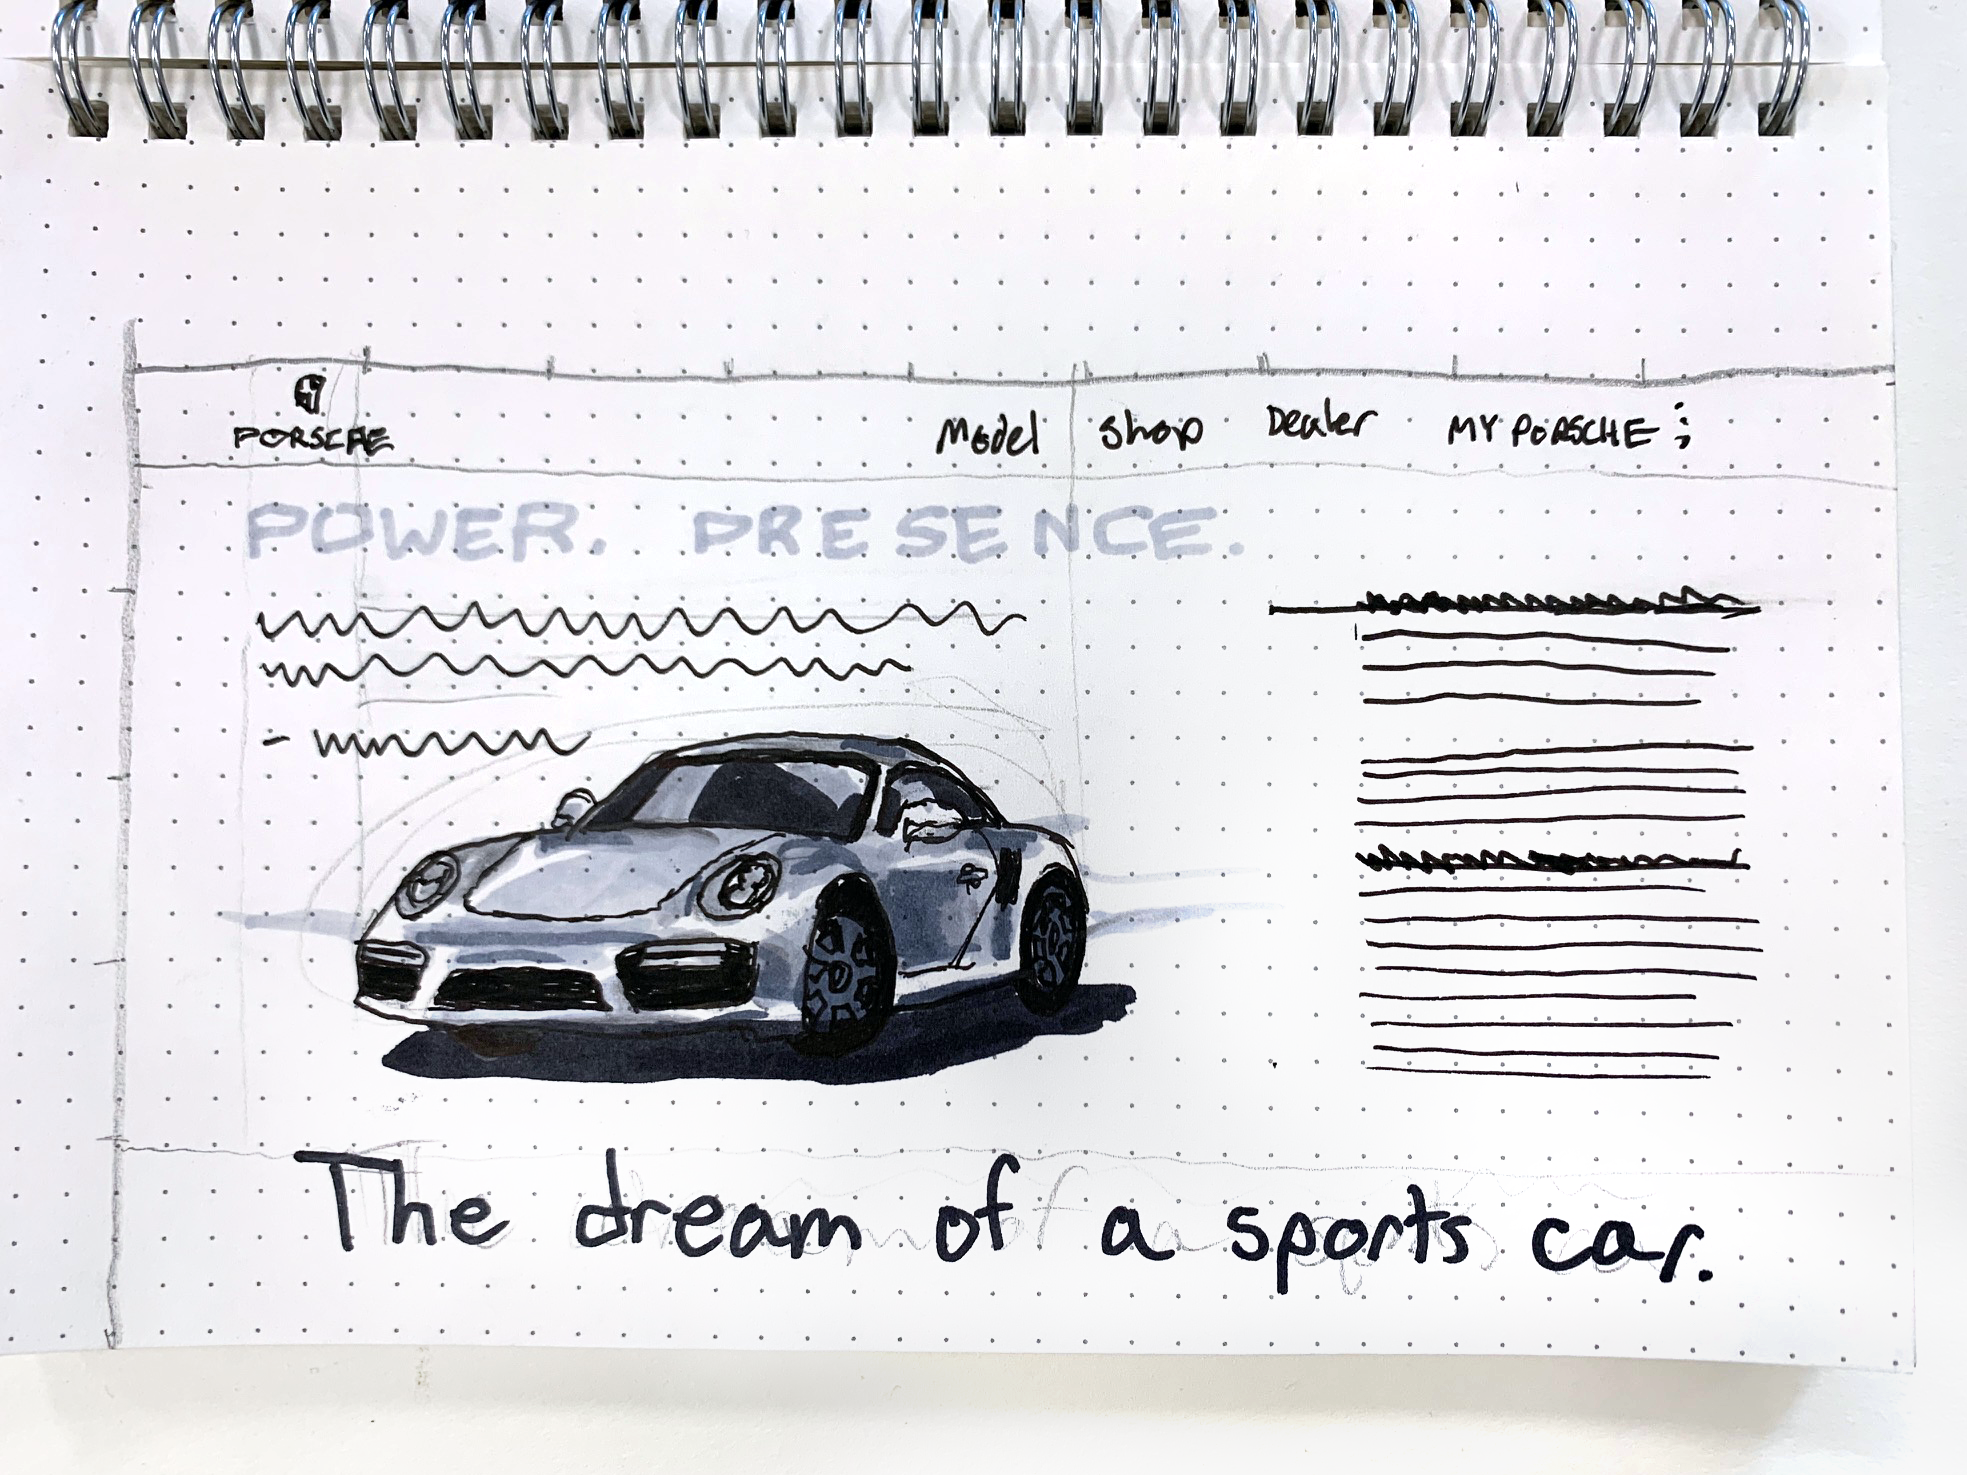 PORSCHE
Model Shop Dealer MY PORSCHE
POWER. PRESENCE.
The dream of a sports car.